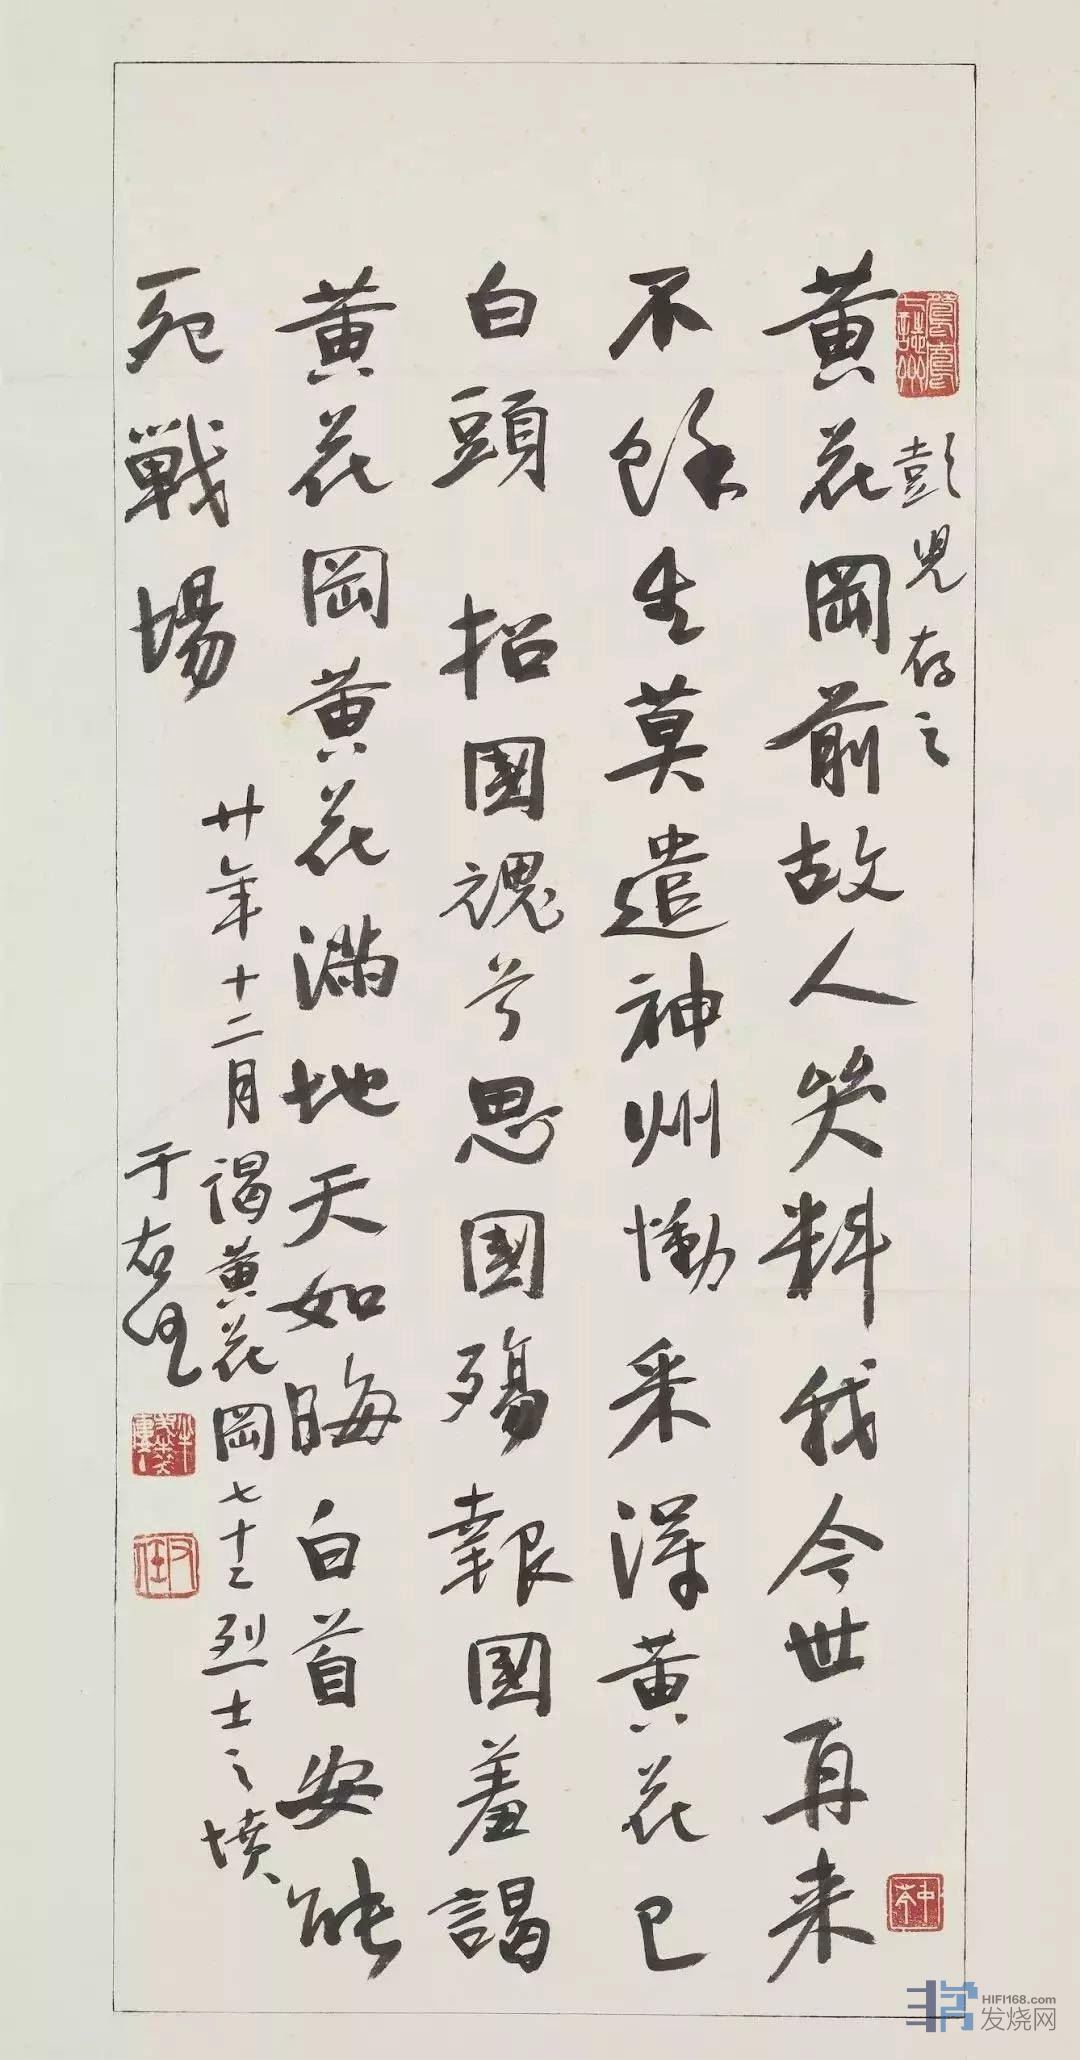 彭兒存之
黄花岡前故人笑料我今世再来
不餘生莫遣神州慟采得黄花已
白頭 招國魂兮思國殤報國羞謁
黄花岡黄花滿地天如晦白首安能
死戰場
廿年十二月謁黄花岡七十二烈士之墳
于右任
右任
HIFI168.com
发烧网